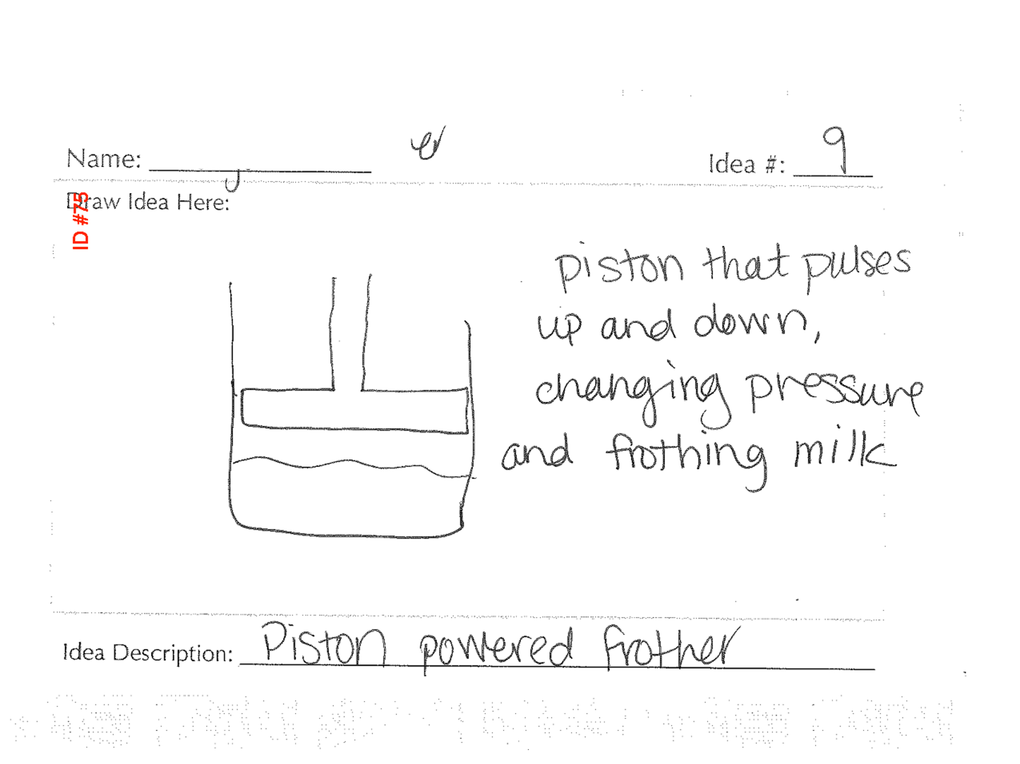 Name:
Idea #: 9
ID #75
Draw Idea Here:
piston that pulses
up and down,
changing pressure
and frothing milk
Idea Description: Piston powered frother